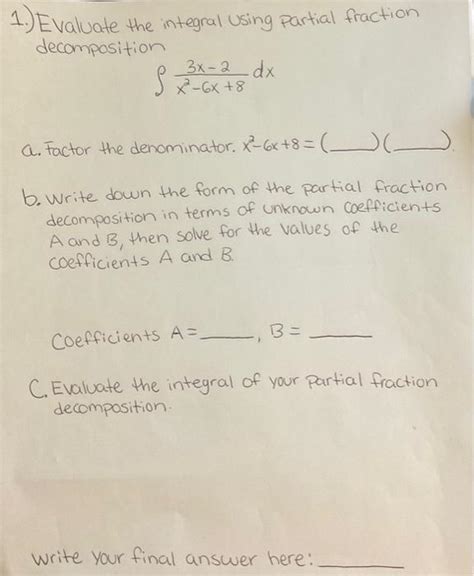 1.) Evaluate the integral using partial fraction
decomposition
∫ (3x-2)/(x²-6x+8) dx
a. Factor the denominator. x²-6x+8 = (___)(___).
b. Write down the form of the partial fraction
decomposition in terms of unknown coefficients
A and B, then solve for the values of the
coefficients A and B.
Coefficients A=____, B = ____
C. Evaluate the integral of your partial fraction
decomposition.
Write your final answer here: ______